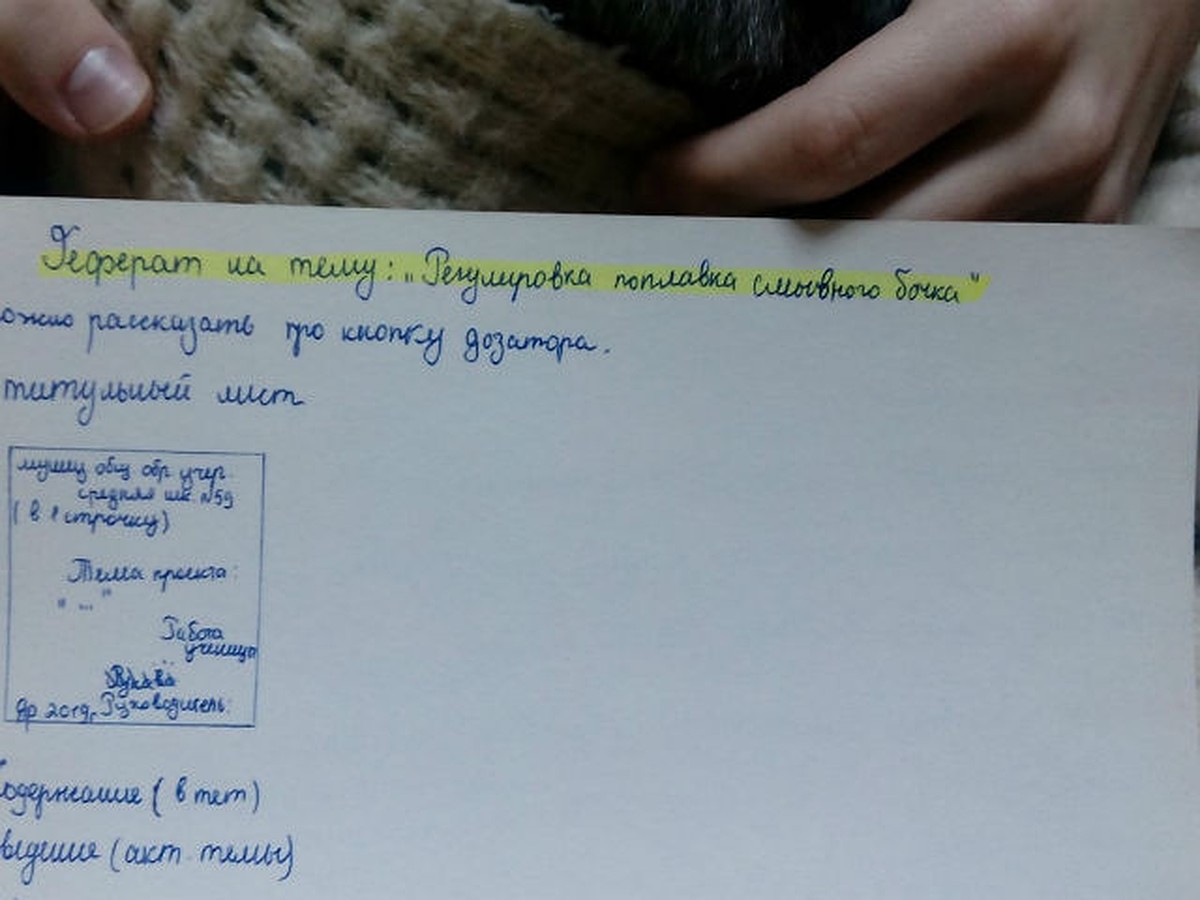 Реферат на тему: „Регулировка поплавка смывного бочка"
ожно рассказать про кнопку дозатора.
титульный лист
общ обр учер.
средняя шк. №59
(в 1 строчку)
Тема проекта:
„ ... "
Работа
ученицы
Яр 2019г. Руководитель:
Содержание (в тет)
ведение (акт. темы)